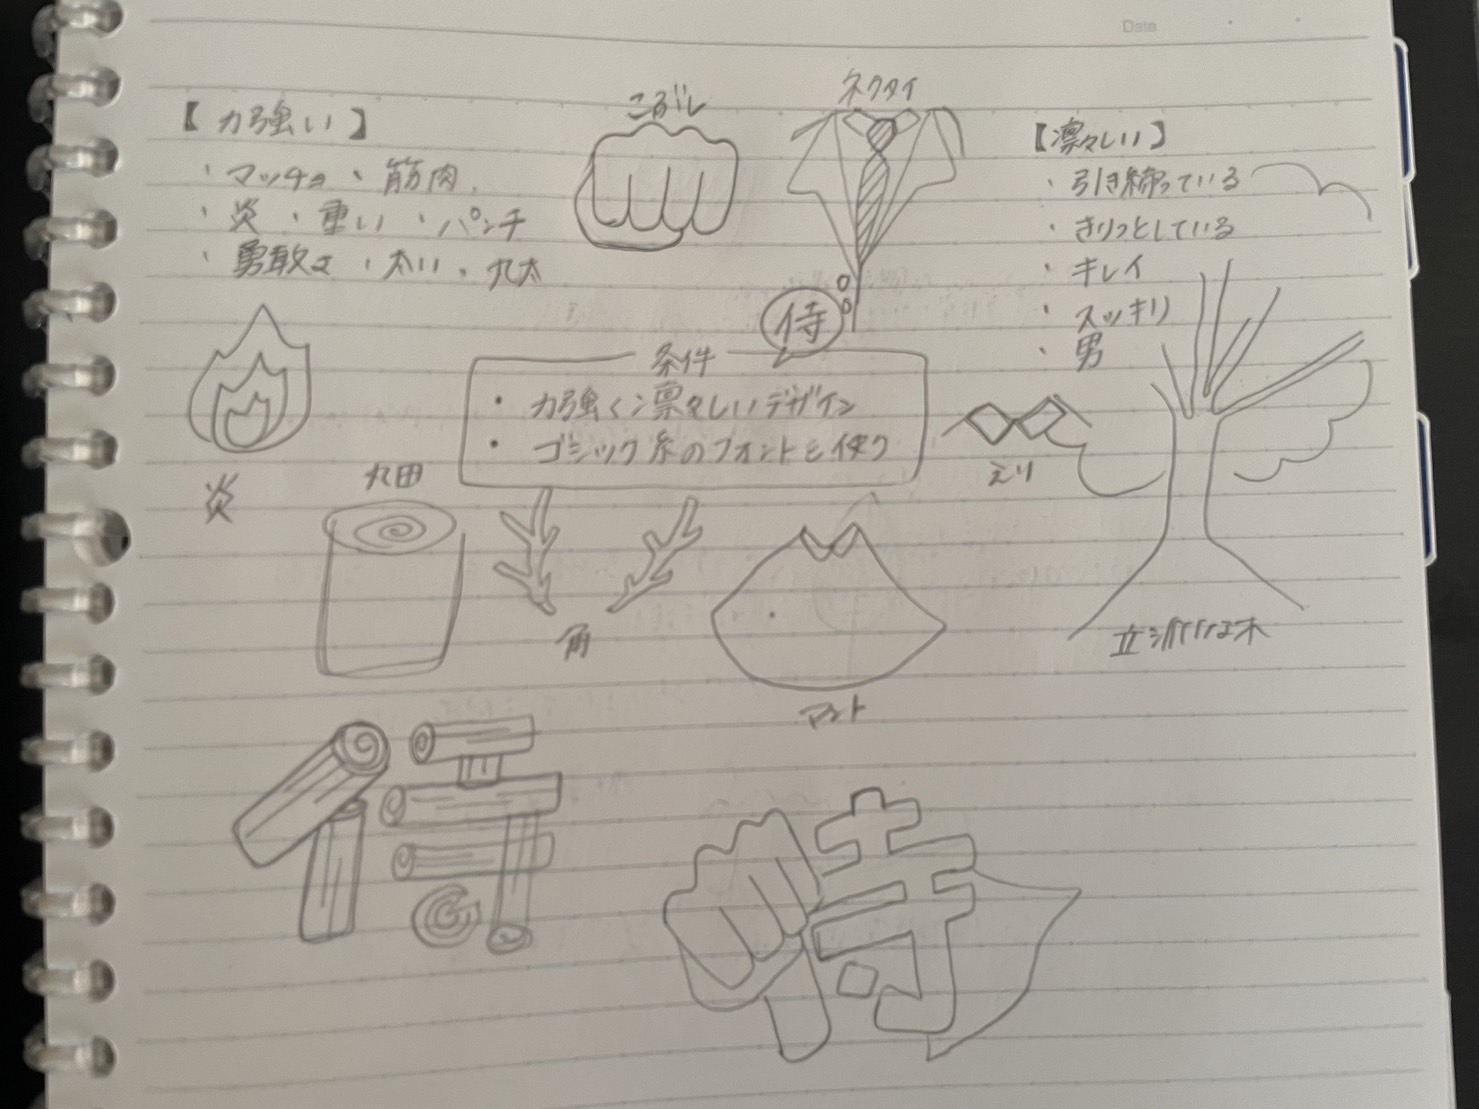 Date
【力強い】
・マッチョ・筋肉
・炎・重い・パンチ
・勇敢さ・太い・丸太
こぶし
ネクタイ
【凛々しい】
・引き締っている
・きりっとしている
・キレイ
・スッキリ
・男
侍
条件
・力強く凛々しいデザイン
・ゴシック系のフォントを使う
炎
丸田
角
えり
マント
立派な木
侍
侍